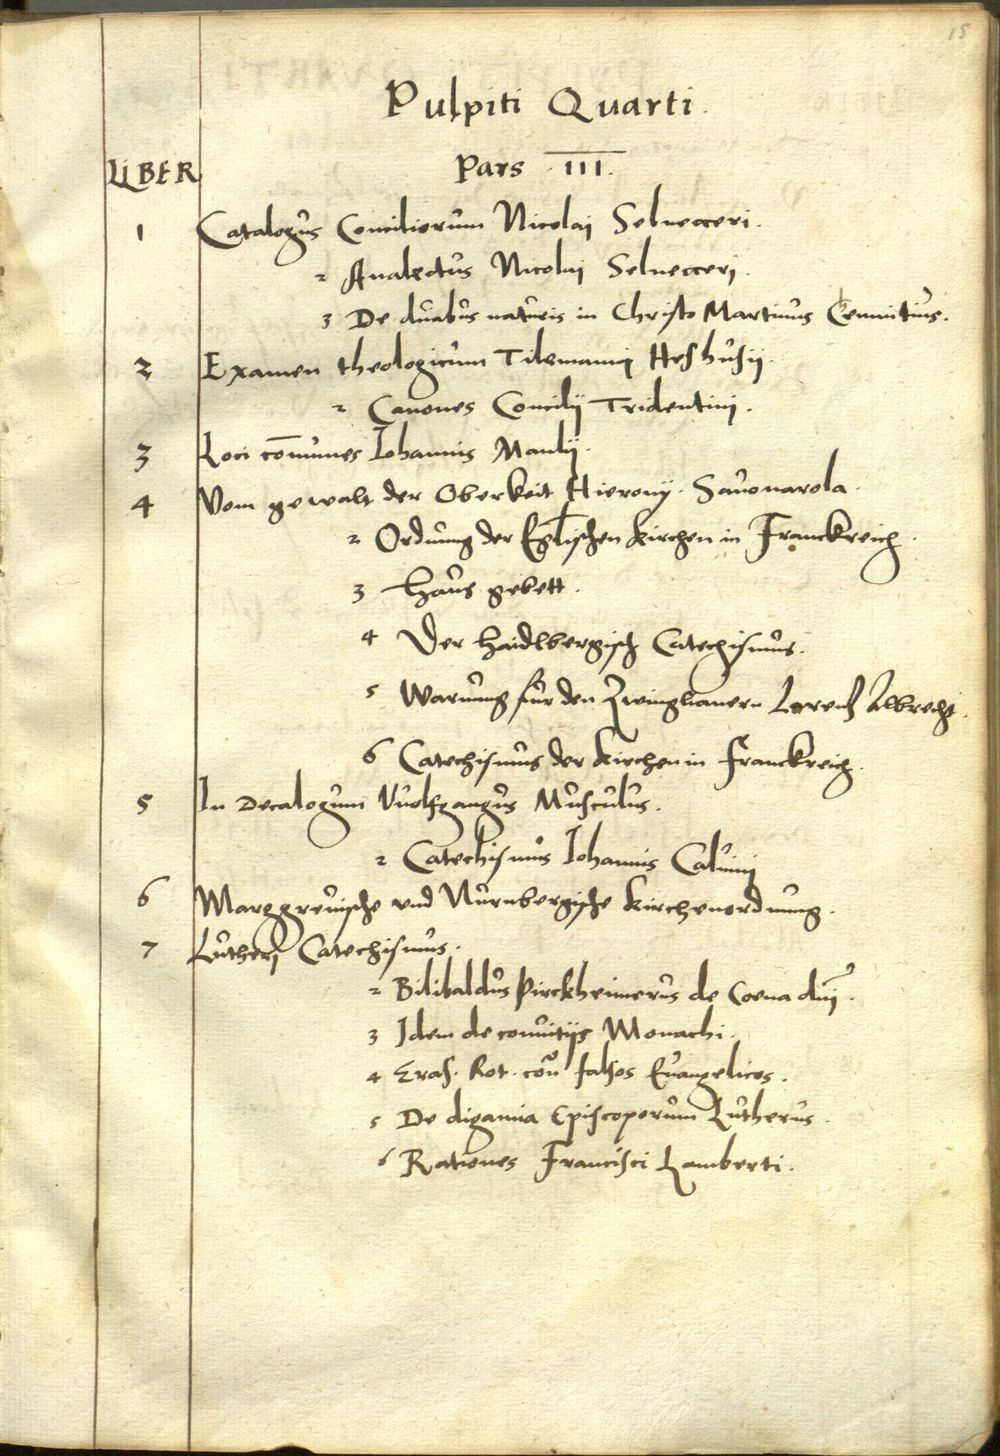 15
Pulpiti Quarti.
LIBER Pars III.
1 Catalogus Conciliorum Nicolaj Selnecceri.
2 Analectus Nicolaj Selneccerj.
3 De duabus naturis in Christo Martinus Cemnitius.
2 Examen theologicum Tilemannj Heshusij.
2 Canones Concilij Tridentini.
3 Loci com̄unes Iohannis Manlij.
4 Vom gewalt der Oberkeit Hieronÿ. Sauonarola.
2 Ordnung der Eglischen Kirchen in Franckreich.
3 Haus gebett.
4 Der Haidlbergisch Catechismus.
5 Warnung für den Zwinglianern Lorentz Albrecht.
6 Catechismus der Kirchen in Franckreich.
5 In Decalogum Vuolfgangus Musculus.
2 Catechismus Iohannis Caluinj
6 Marggreuische vnd Nurnbergische Kirchenordnung.
7 Lutherj Catechismus.
2 Bilibaldus Pirckheimerus de Coena dnī.
3 Idem de conuitijs Monachi.
4 Eras. Rot. con falsos Euangelicos.
5 De digamia Episcoporum Lutherus.
6 Rationes Francisci Lamberti.